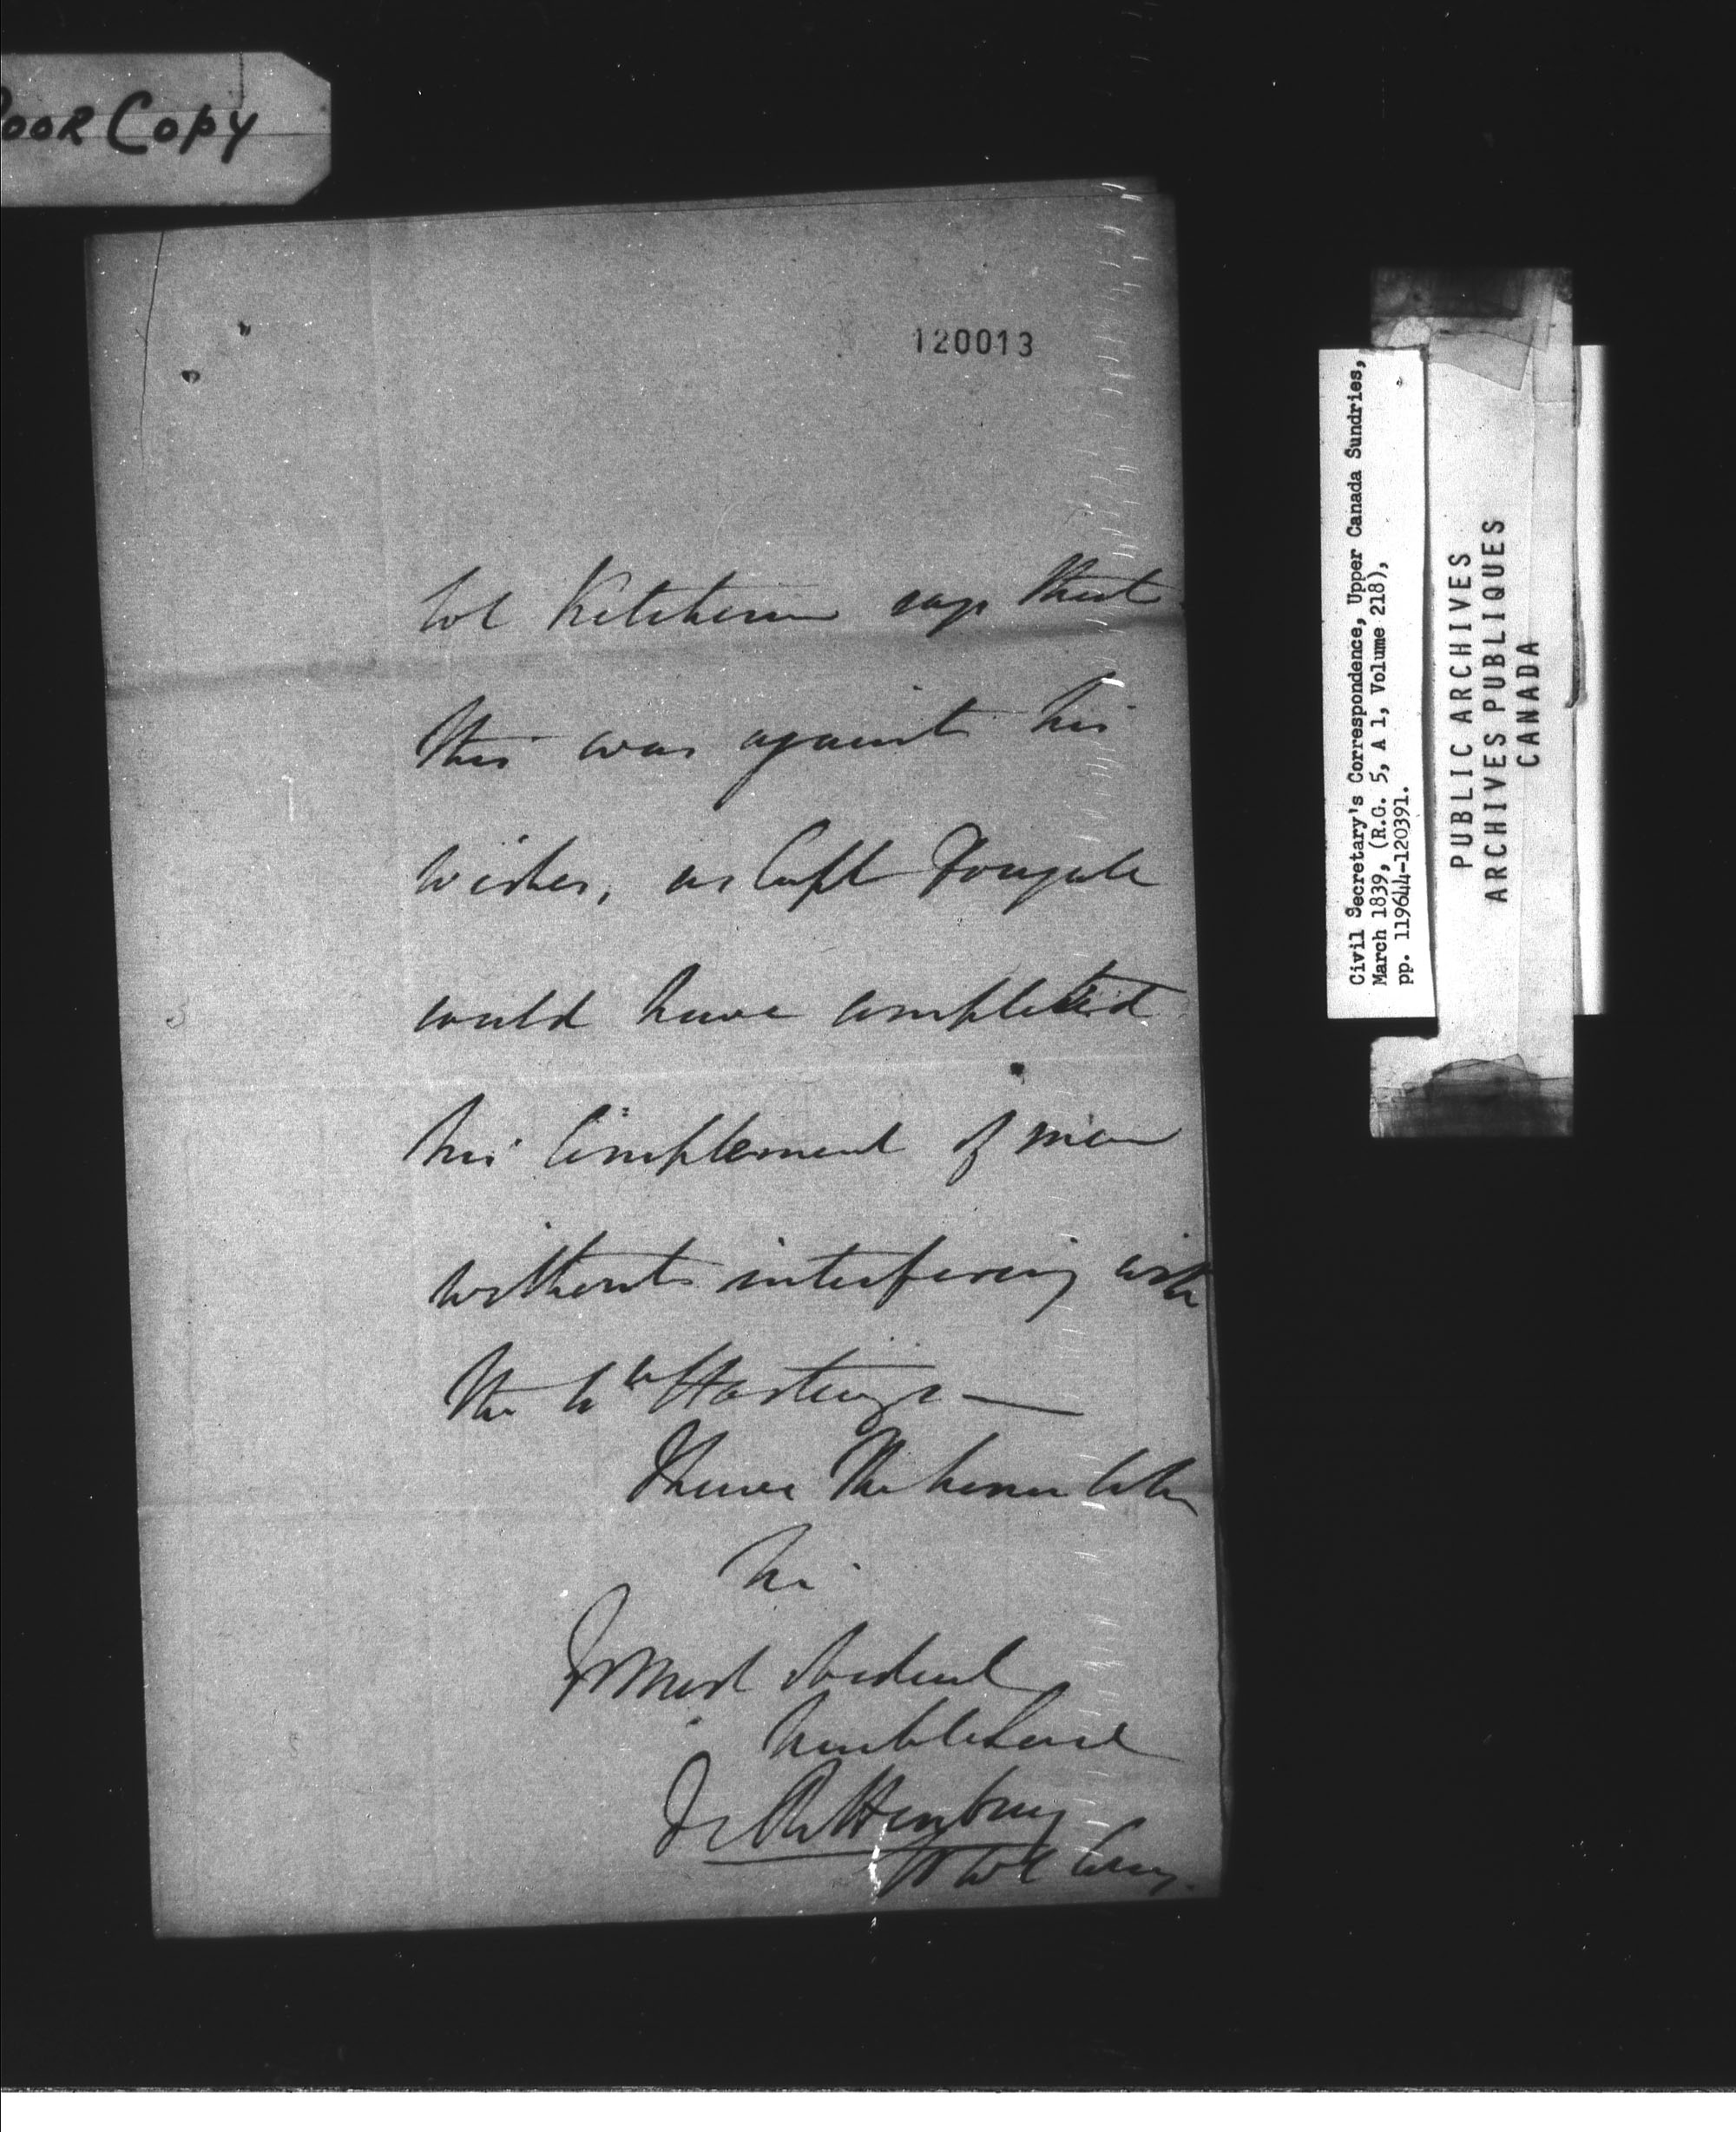 POOR COPY
120013
Col Ketcheson says that
this was against his
wishes, as Capt Dougale
could have completed
his Complement of men
without interfering with
the Hastings —
I have the honor to be
Sir
Yr Most obedient
humble Servt
Civil Secretary's Correspondence, Upper Canada Sundries,
March 1839, (R.G. 5, A 1, Volume 218),
pp. 119644-120391.
PUBLIC ARCHIVES
ARCHIVES PUBLIQUES
CANADA